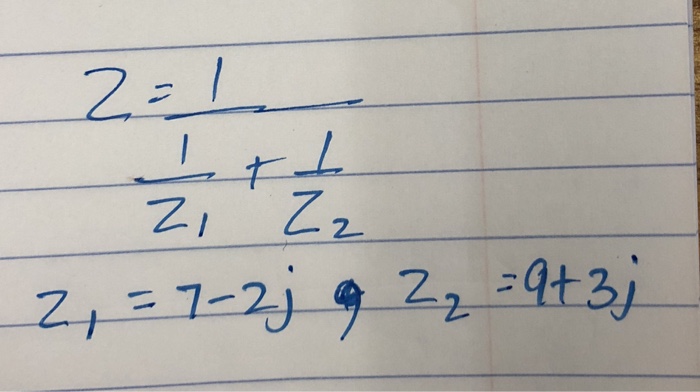 Z = 1
1/Z₁ + 1/Z₂
Z₁ = 7-2j , Z₂ = 9+3j